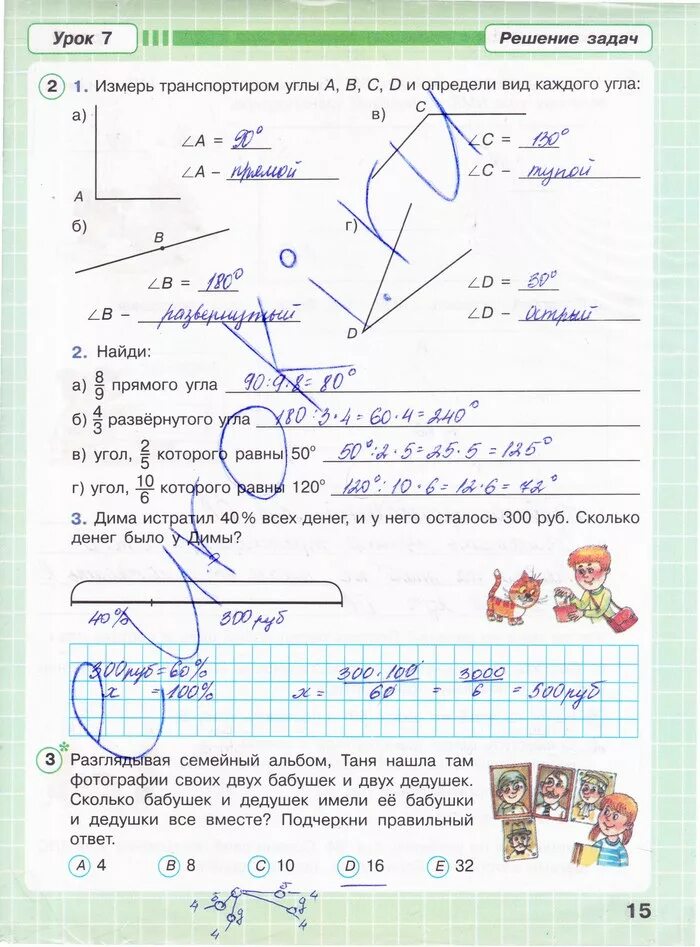 Урок 7
Решение задач
2 1. Измерь транспортиром углы A, B, C, D и определи вид каждого угла:
а)
A
∠A = 90°
∠A – прямой
в)
C
∠C = 130°
∠C – тупой
б)
B
∠B = 180°
∠B – развернутый
г)
D
∠D = 30°
∠D – острый
2. Найди:
а) 8/9 прямого угла 90:9·8=80°
б) 4/3 развёрнутого угла 180:3·4=60·4=240°
в) угол, 2/5 которого равны 50° 50°:2·5=25·5=125°
г) угол, 10/6 которого равны 120° 120°:10·6=12·6=72°
3. Дима истратил 40% всех денег, и у него осталось 300 руб. Сколько
денег было у Димы?
?
40% 300 руб
300 руб = 60%
x = 100%
x = 300·100/60 = 3000/6 = 500 руб
3* Разглядывая семейный альбом, Таня нашла там
фотографии своих двух бабушек и двух дедушек.
Сколько бабушек и дедушек имели её бабушки
и дедушки все вместе? Подчеркни правильный
ответ.
A 4 B 8 C 10 D 16 E 32
4 б б 4
4 д д 4
15
urok i.ru